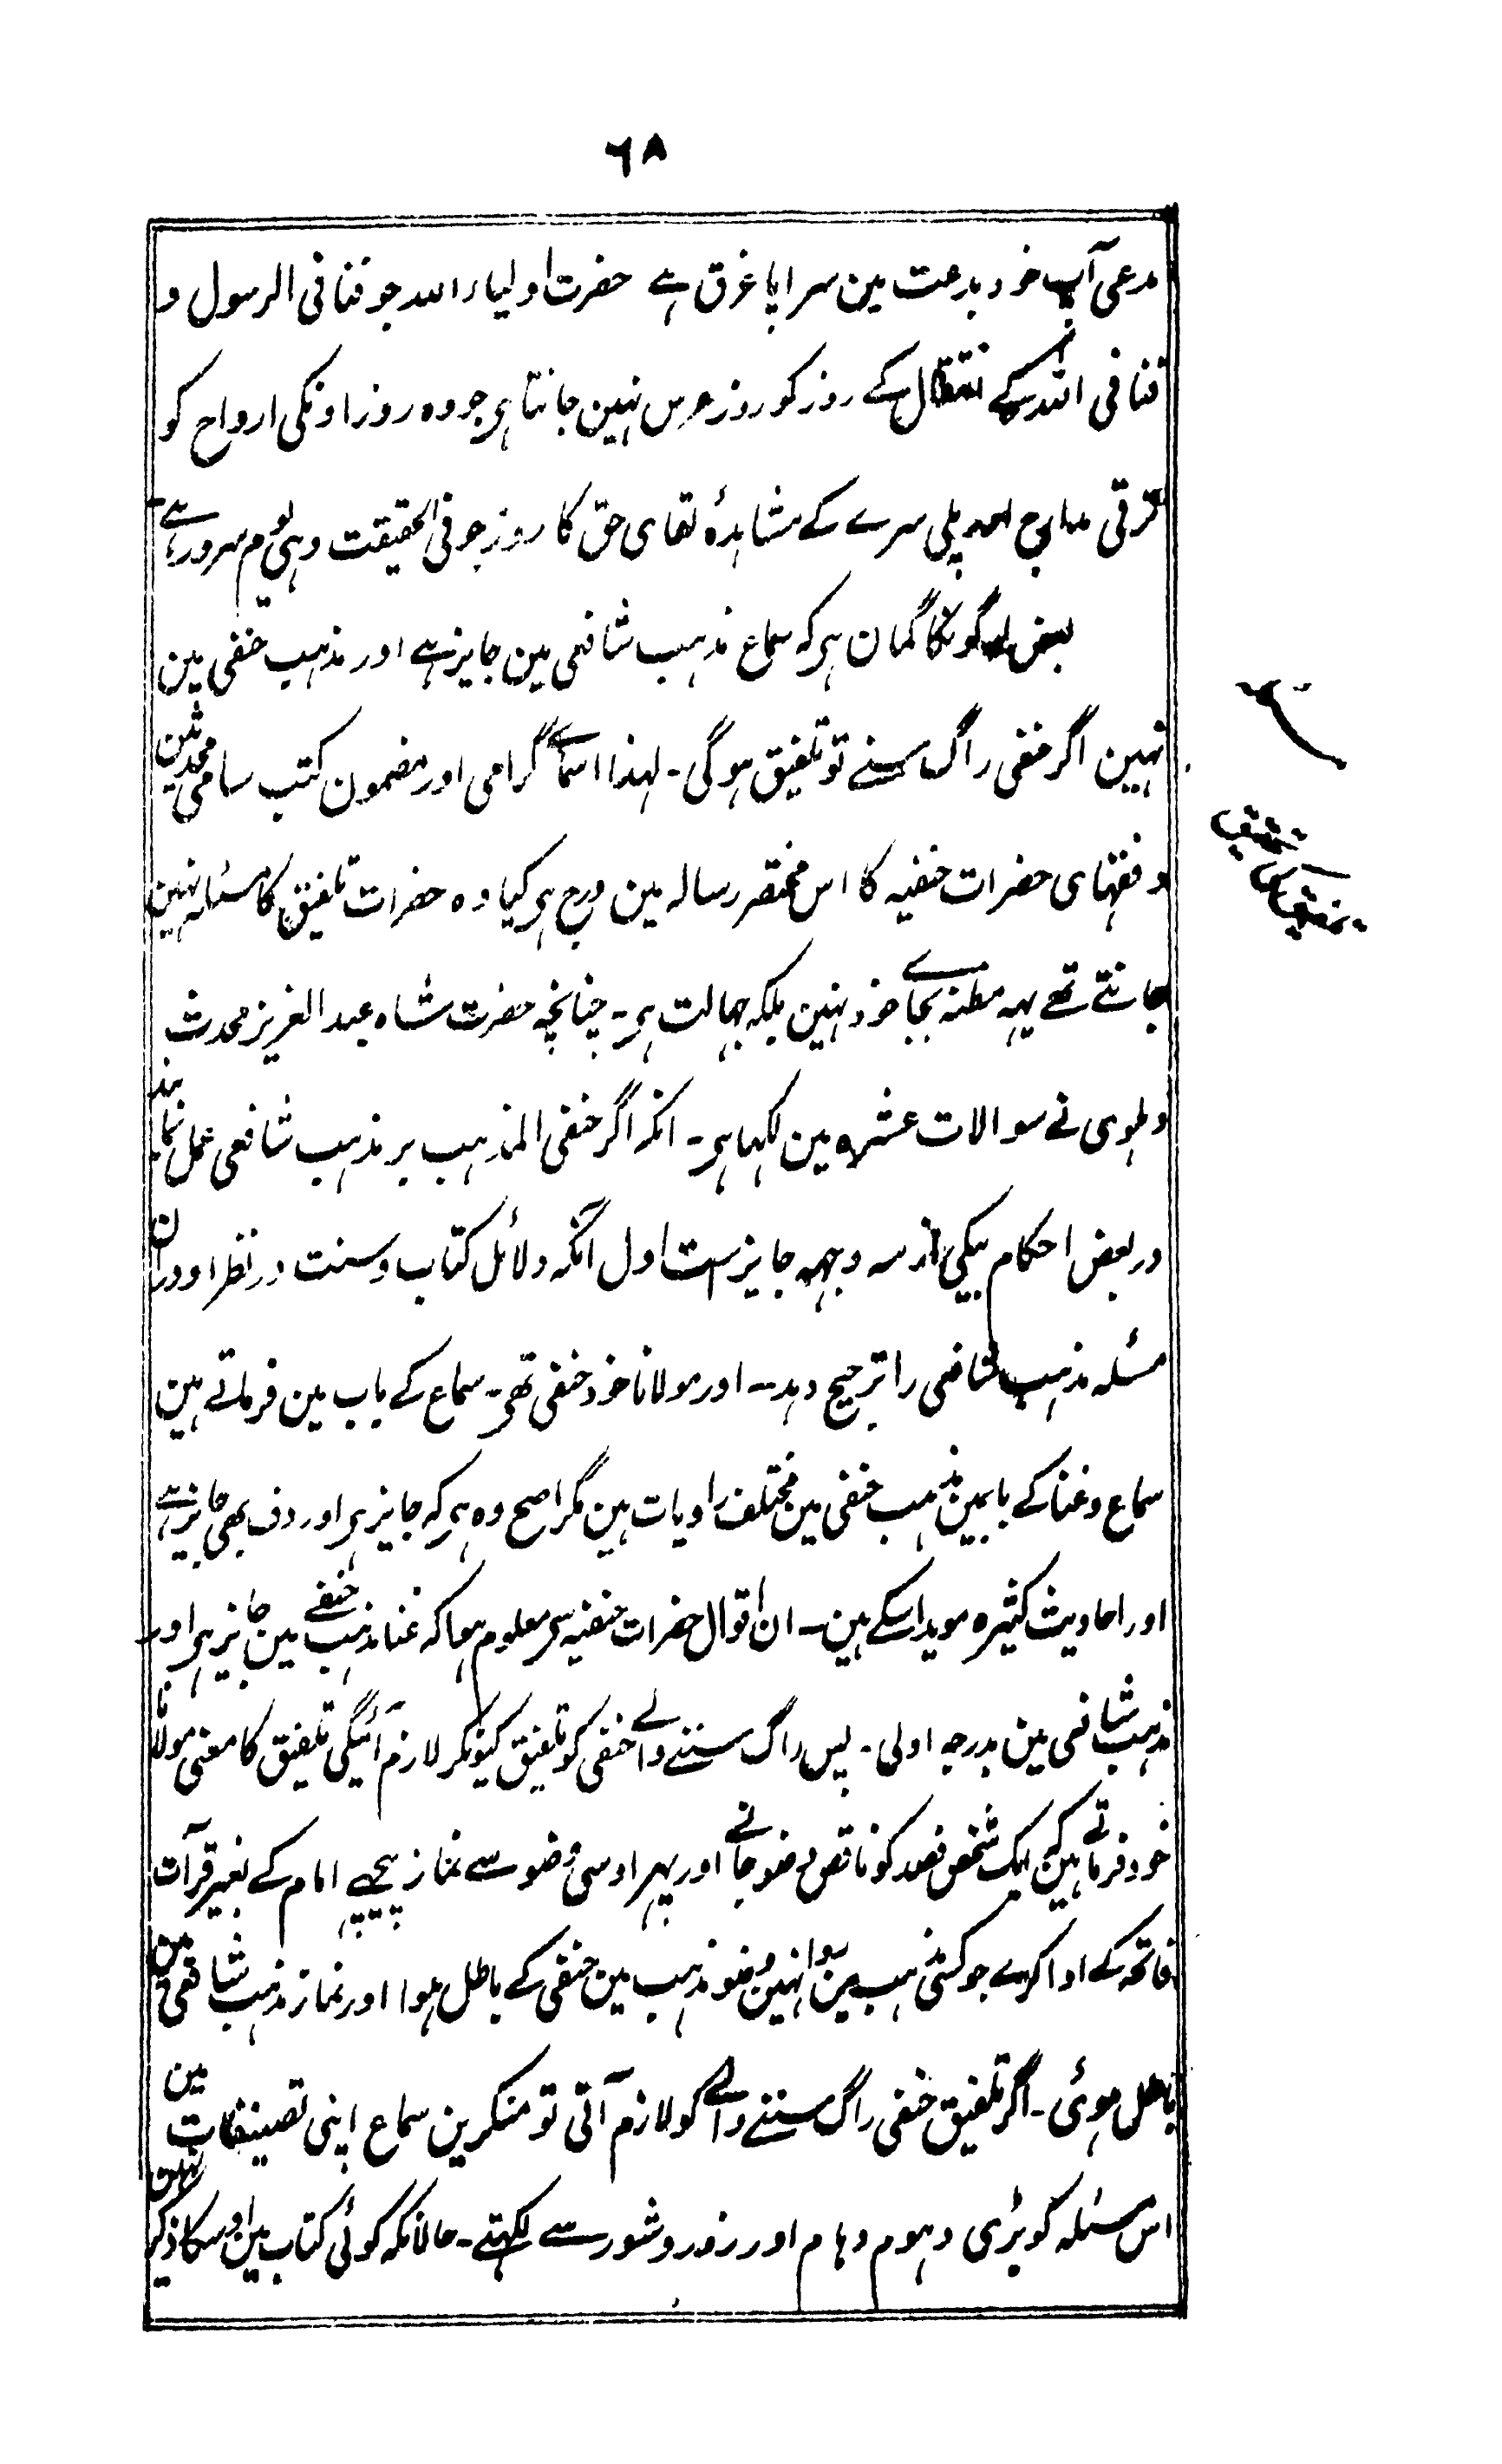 ٦٨
مدعی آپ خود بدعت مین سراپا غرق ہے حضرت اولیاء اللہ جو فنا فی الرسول و
فنا فی اللہ کے انتقال کے روز کو روز عرس نہین جانتا ہی جو وہ روز اونکی ارواح کو
ترقی مدارج اور پلی سرے کے مشاہدۂ لقای حق کا روز جو فی الحقیقت وہی یوم سرور رہا ہے
بعض لوگونکا گمان ہی کہ سماع مذہب شافعی مین جایز ہے اور مذہب حنفی مین
نہین اگر حنفی راگ سنے تو تلفیق ہو گی ۔ لہذا اسمائے گرامی اور مضمون کتب سامی محدثین
و فقہای حضرات حنفیہ کا اس مختصر رسالہ مین درج ہی کیا وہ حضرات تلفیق کا مسئلہ نہین
جانتے تھے یہہ مظنہ بجائے خود نہین بلکہ جہالت ہی ۔ چنانچہ حضرت شاہ عبد العزیز محدث
دہلوی نے سوالات عشرہ مین لکہا ہی ۔ انکہ اگر حنفی المذہب بر مذہب شافعی عمل نماید
در بعض احکام بیکی از سہ وجہہ جایز ست اول آنکہ دلائل کتاب و سنت در نظر او در ان
مسئلہ مذہب شافعی را ترجیح دہد ۔ اور مولانا خود حنفی تھی ۔ سماع کے باب مین فرماتے ہین
سماع و غنا کے بابمین مذہب حنفی مین مختلف راویات ہین مگر اصح وہ ہی کہ جایز ہی اور دف بھی جایز ہے
اور احادیث کثیرہ موید اسکے ہین ۔ ان اقوال حضرات حنفیہ سی معلوم ہوا کہ غنا مذہب حنفے مین جایز ہی اور
مذہب شافعی مین بدرجہ اولی ۔ پس راگ سننے والے حنفی کو تلفیق کیونکر لازم آئیگی تلفیق کا معنی مولانا
خود فرماتے ہین کہ ایک شخص فصد کو ناقص وضو جانے اور پہر اوسی وضو سے نماز پیچہے امام کے بغیر قرآت
فاتحہ کے ادا کرے جو کسی مذہب مین روا نہین وضو مذہب مین حنفی کے باطل ہوا اور نماز مذہب شافعی مین
باطل ہوئی ۔ اگر تلفیق حنفی راگ سننے والے کو لازم آتی تو منکرین سماع اپنی تصنیفات مین
اس مسئلہ کو بڑی دہوم دہام اور زور و شور سے لکہتے ۔ حالانکہ کوئی کتاب مین اوسکا ذکر نہین